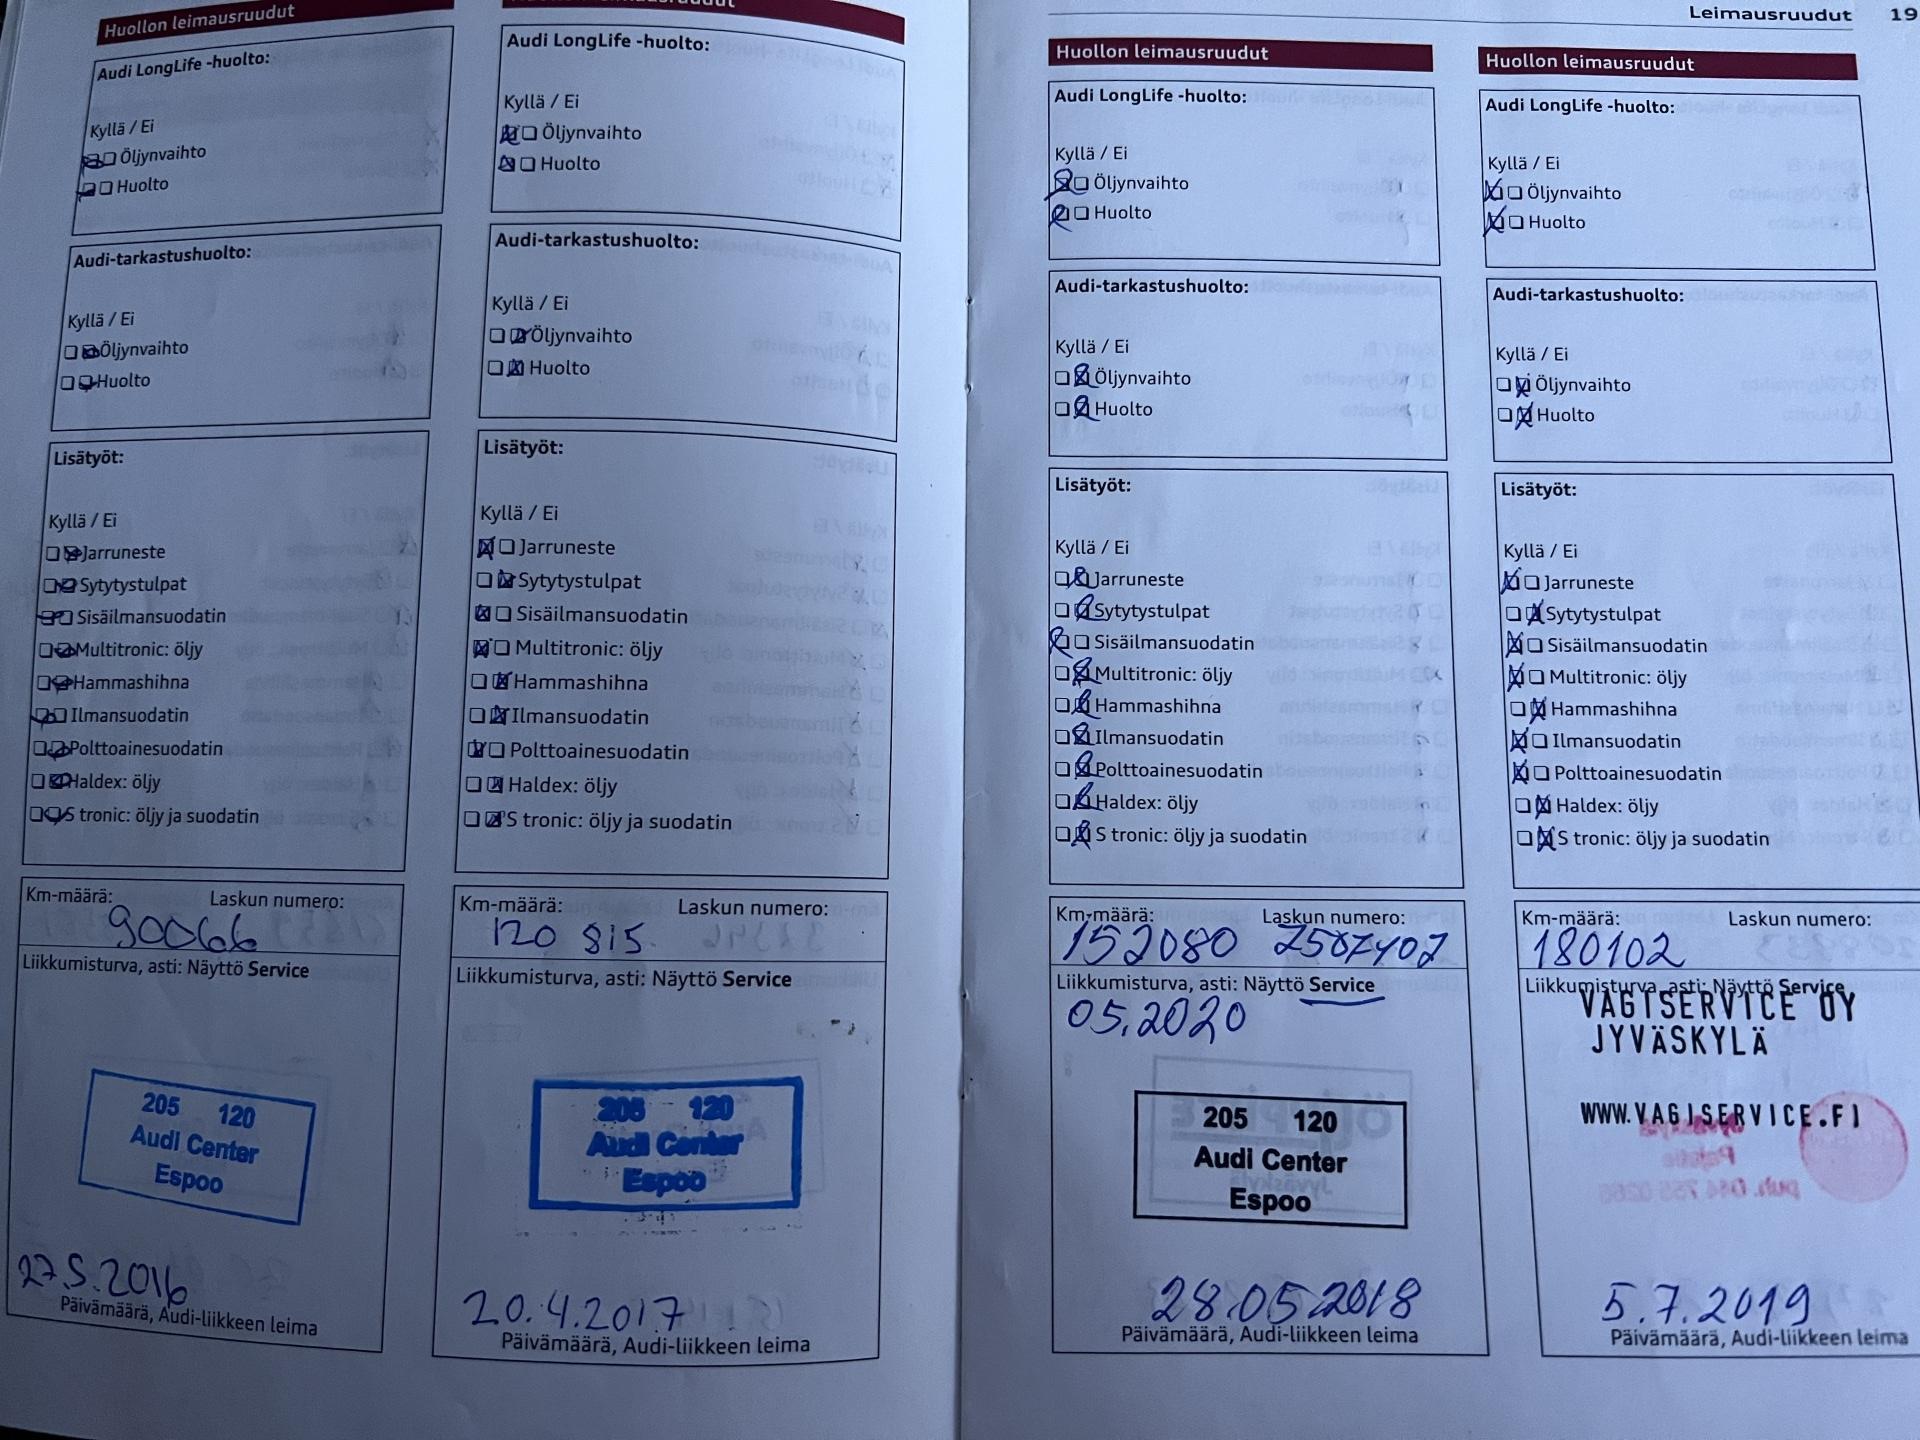 Huollon leimausruudut
Audi LongLife -huolto:
Kyllä / Ei
Öljynvaihto
Huolto
Audi-tarkastushuolto:
Kyllä / Ei
Öljynvaihto
Huolto
Lisätyöt:
Kyllä / Ei
Jarruneste
Sytytystulpat
Sisäilmansuodatin
Multitronic: öljy
Hammashihna
Ilmansuodatin
Polttoainesuodatin
Haldex: öljy
S tronic: öljy ja suodatin
Km-määrä: Laskun numero:
90066
Liikkumisturva, asti: Näyttö Service
205 120
Audi Center
Espoo
27.5.2016
Päivämäärä, Audi-liikkeen leima
Huollon leimausruudut
Audi LongLife -huolto:
Kyllä / Ei
Öljynvaihto
Huolto
Audi-tarkastushuolto:
Kyllä / Ei
Öljynvaihto
Huolto
Lisätyöt:
Kyllä / Ei
Jarruneste
Sytytystulpat
Sisäilmansuodatin
Multitronic: öljy
Hammashihna
Ilmansuodatin
Polttoainesuodatin
Haldex: öljy
S tronic: öljy ja suodatin
Km-määrä: Laskun numero:
120 815
Liikkumisturva, asti: Näyttö Service
205 120
Audi Center
Espoo
20.4.2017
Päivämäärä, Audi-liikkeen leima
Leimausruudut 19
Huollon leimausruudut
Audi LongLife -huolto:
Kyllä / Ei
Öljynvaihto
Huolto
Audi-tarkastushuolto:
Kyllä / Ei
Öljynvaihto
Huolto
Lisätyöt:
Kyllä / Ei
Jarruneste
Sytytystulpat
Sisäilmansuodatin
Multitronic: öljy
Hammashihna
Ilmansuodatin
Polttoainesuodatin
Haldex: öljy
S tronic: öljy ja suodatin
Km-määrä: Laskun numero:
152080 2507407
Liikkumisturva, asti: Näyttö Service
05.2020
205 120
Audi Center
Espoo
28.05.2018
Päivämäärä, Audi-liikkeen leima
Huollon leimausruudut
Audi LongLife -huolto:
Kyllä / Ei
Öljynvaihto
Huolto
Audi-tarkastushuolto:
Kyllä / Ei
Öljynvaihto
Huolto
Lisätyöt:
Kyllä / Ei
Jarruneste
Sytytystulpat
Sisäilmansuodatin
Multitronic: öljy
Hammashihna
Ilmansuodatin
Polttoainesuodatin
Haldex: öljy
S tronic: öljy ja suodatin
Km-määrä: Laskun numero:
180102
Liikkumisturva, asti: Näyttö Service
VAGISERVICE OY
JYVÄSKYLÄ
WWW.VAGISERVICE.FI
5.7.2019
Päivämäärä, Audi-liikkeen leima